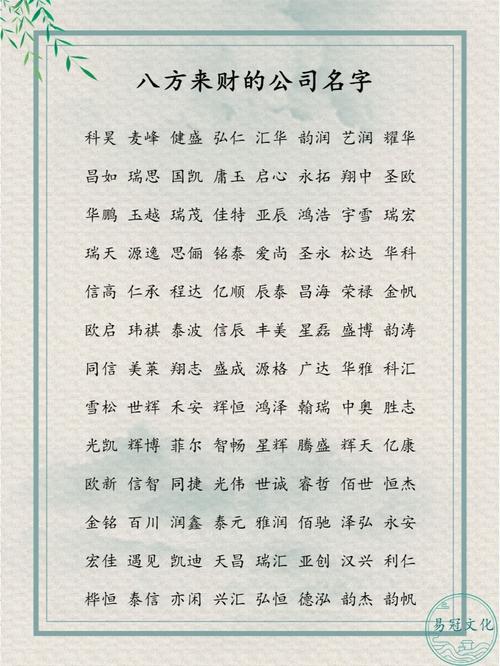 八方来财的公司名字
科昊 麦峰 健盛 弘仁 汇华 韵润 艺润 耀华
昌如 瑞思 国凯 庸玉 启心 永拓 翔中 圣欧
华鹏 玉越 瑞茂 佳特 亚辰 鸿浩 宇雪 瑞宏
瑞天 源逸 思俪 铭泰 爱尚 圣永 松达 华科
信高 仁承 程达 亿顺 辰泰 昌海 荣禄 金帆
欧启 玮祺 泰波 信辰 丰美 星磊 盛博 韵涛
同信 美莱 翔志 盛成 源格 广达 华雅 科汇
雪松 世辉 禾安 辉恒 鸿泽 翰瑞 中奥 胜志
光凯 辉博 菲尔 智畅 星辉 腾盛 辉天 亿康
欧新 信智 同捷 光伟 世诚 睿哲 佰世 恒杰
金铭 百川 润鑫 泰元 雅润 佰驰 泽弘 永安
宏佳 遇见 凯迪 天昌 瑞汇 亚创 汉兴 利仁
桦恒 泰信 亦闲 兴汇 弘恒 德泓 韵杰 韵帆
易冠文化